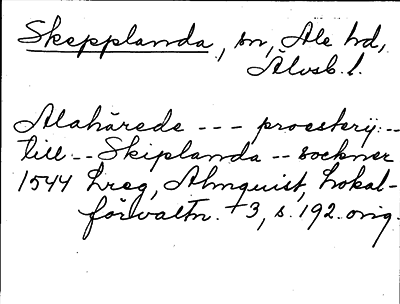 Skepplanda, sn, Ale hd,
Älvsb. l.
Alahärede --- proesterij --
till -- Skiplanda -- sockner
1544 hreg, Almquist, Lokal-
förvaltn. +3, s. 192. orig.